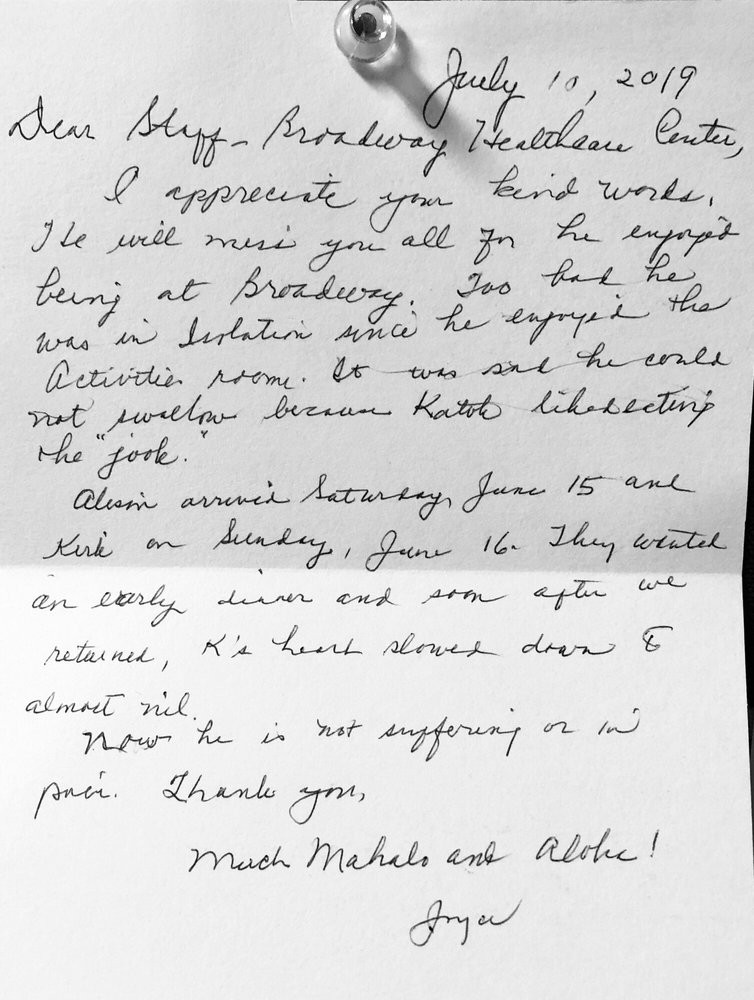 July 10, 2019
Dear Staff - Broadway Healthcare Center,
I appreciate your kind words.
He will miss you all for he enjoyed
being at Broadway. Too bad he
was in Isolation since he enjoyed the
Activities room. It was sad he could
not swallow because Katok liked eating
the "jook."
Alison arrived Saturday, June 15 and
Kirk on Sunday, June 16. They wanted
an early dinner and soon after we
returned, K's heart slowed down to
almost nil.
Now he is not suffering or in
pain. Thank you,
Much Mahalo and Aloha!